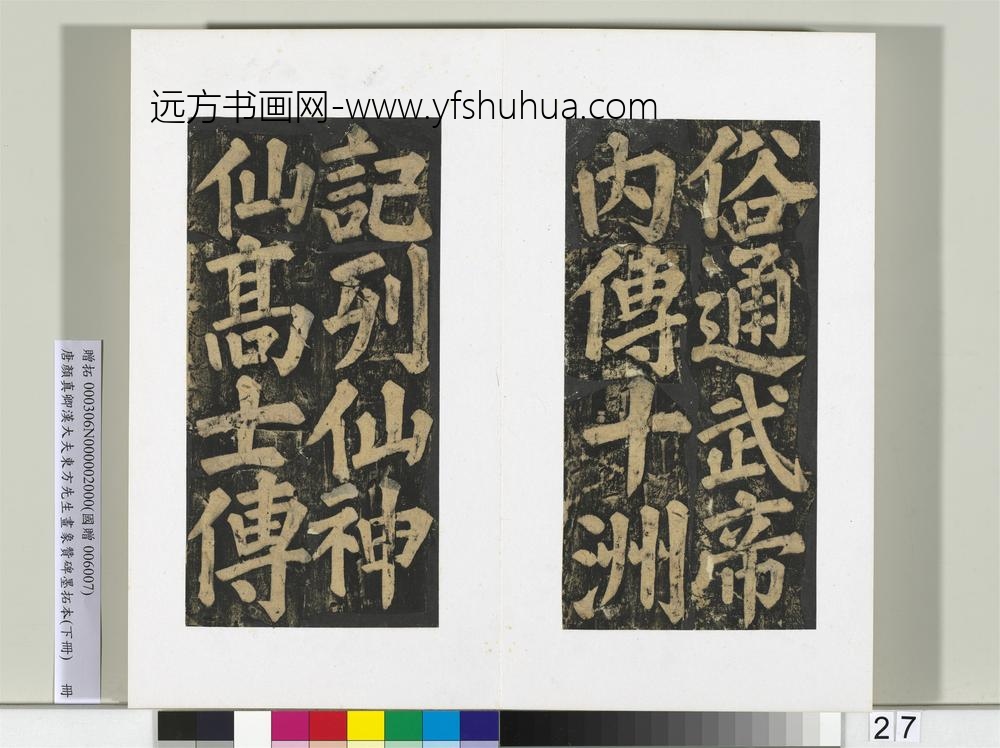 远方书画网-www.yfshuhua.com
俗通武帝
内傳十洲
記列仙神
仙高士傳
贈拓 000306N000002000(國贈 006007)
唐顏真卿漢大夫東方先生畫象贊碑墨拓本(下冊) 冊
27